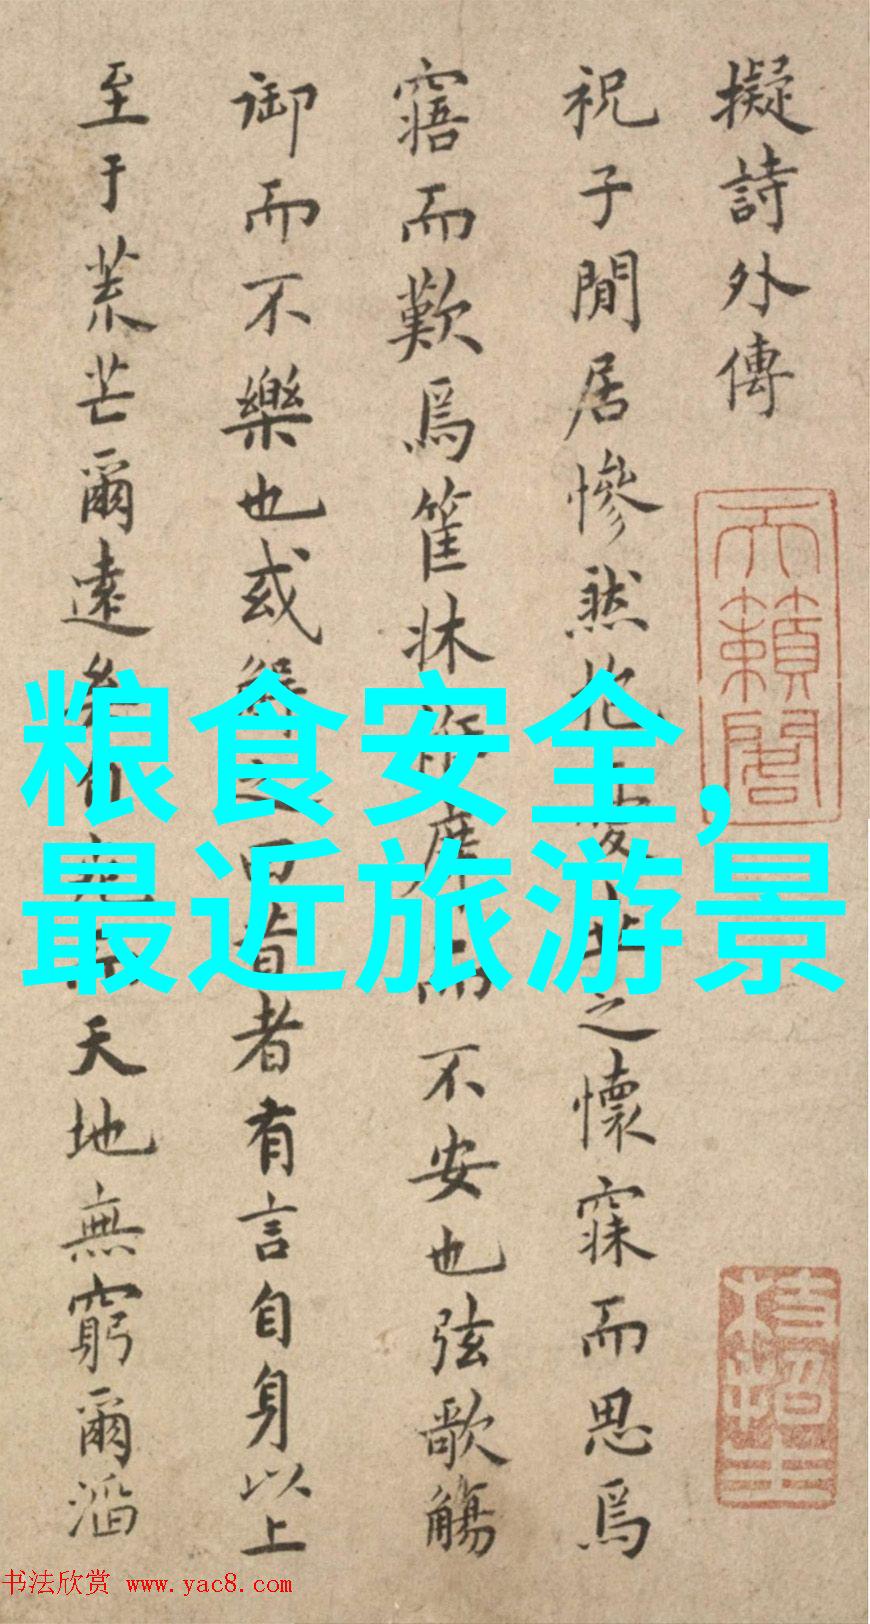 擬詩外傳
祝子閒居慘然抱
之懷寐而思焉
寤而歎焉筐牀
而不安也弦歌觴
御而不樂也或解之曰
者有言自身以上
至于荒芒爾遠矣
天地無窮爾滔
天籟閣
粮食安全,
最近旅游景
书法欣赏 www.yac8.com